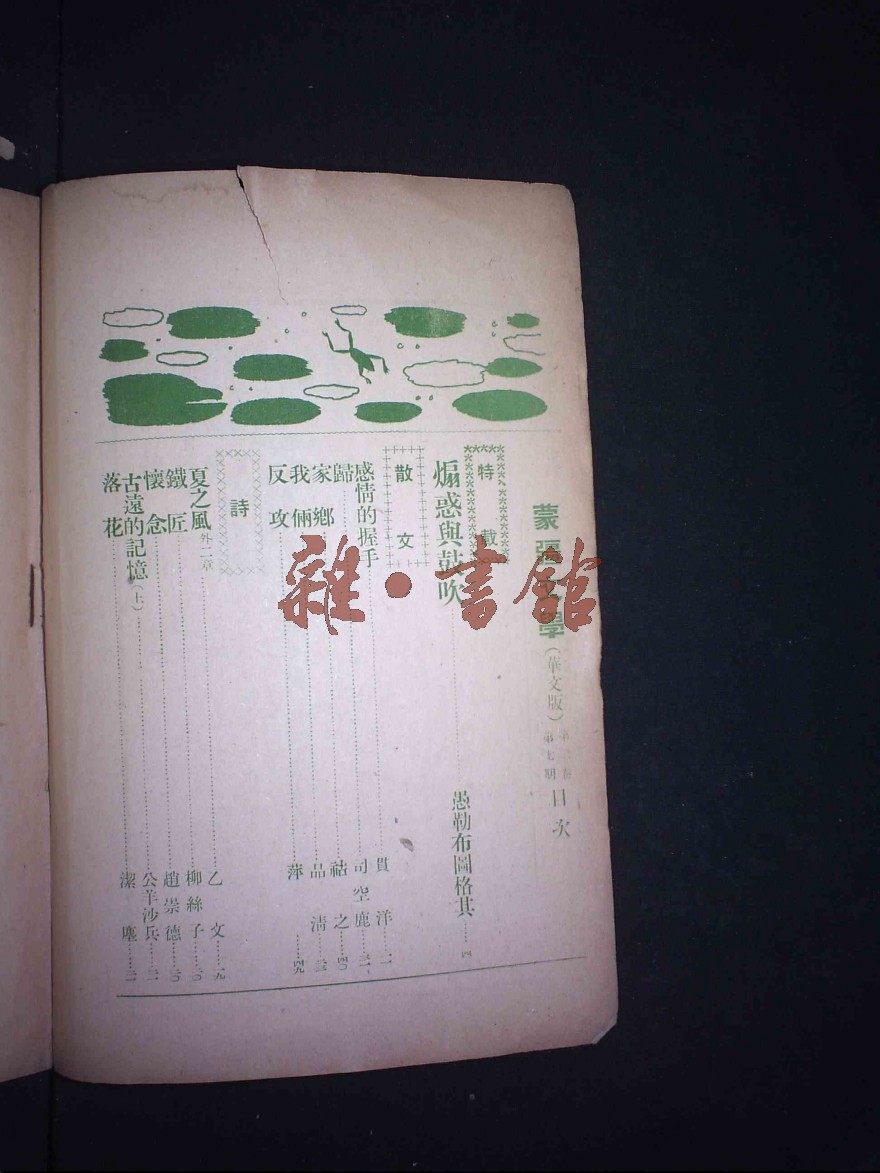 蒙疆文學（華文版）第七期 目次
特載
煽惑與鼓吹……愚勒布圖格其……四
散文
感情的握手……貫洋
歸……司空鹿
家鄉……祜之……四〇
我倆……品清
反攻……萍……四九
詩
夏之風外二章……乙文……一九
鐵匠……柳絲子……二〇
懷念……趙崇德……二〇
古遠的記憶（上）……公羊沙兵……二一
落花……潔塵……二一
雜·書館